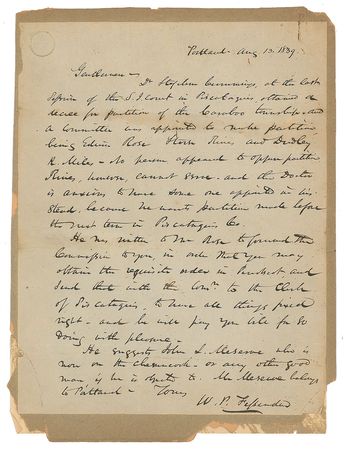 Portland Aug 13. 1839.
Gentlemen —
Dr Stephen Cummings, at the last
Session of the S. J. court in Piscataquis obtained a
decree for partition of the township — and
a Committee was appointed to make partition,
being Edwin Rose and Dudley
K. — No person appeared to oppose partition
however, cannot serve — and the Doctor
is anxious to have some one appointed in his
stead, because he wants partition made before
the next term in Piscataquis Co
He has written to Mr Rose to forward the
Commission to you, in order that you may
obtain the requisite order in Penobscot and
send that with the to the Clerk
of Piscataquis, to have all things fixed
right — and he will pay you bill for so
doing with pleasure —
He suggests John S. Meserve who is
now on the — or any other good
man if he is to. Mr Meserve belongs
to Portland — Yours
W. P. Fessenden